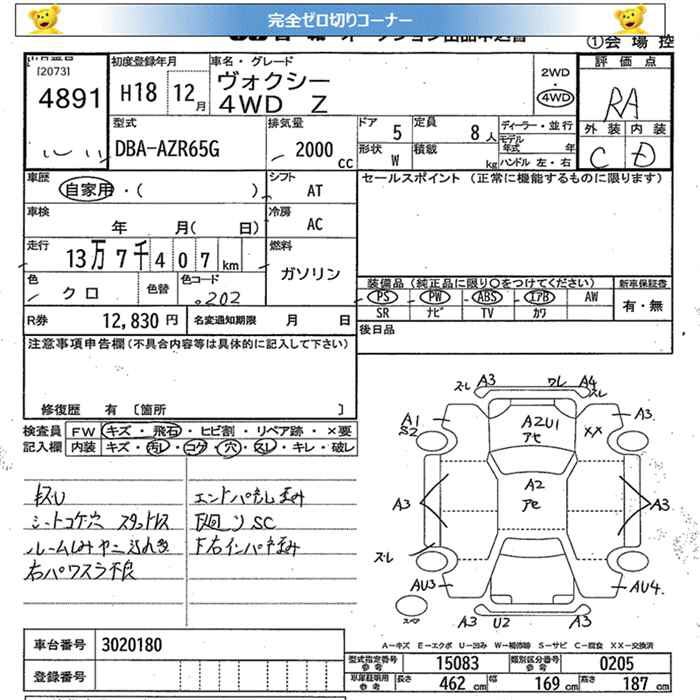 完全ゼロ切りコーナー
①会場控
[2073]
4891
初度登録年月
H18 12月
車名・グレード
ヴォクシー
4WD Z
2WD
・
4WD
評価点
RA
外装 内装
C D
型式
DBA-AZR65G
排気量
2000 cc
ドア 5
形状 W
定員 8人
積載 kg
ディーラー・並行
モデル年式 年
ハンドル 左・右
車歴
自家用・( )
シフト
AT
セールスポイント (正常に機能するものに限ります)
車検
年 月( 日)
冷房
AC
走行
13万7千407km
燃料
ガソリン
色
クロ
色替
色コード
202
装備品 (純正品に限り○をつけてください)
新車保証書
PS PW ABS エアB AW
SR ナビ TV カワ
有・無
R券 12,830円
名変通知期限 月 日
後日品
注意事項申告欄(不具合内容等は具体的に記入して下さい)
修復歴 有 [箇所 ]
検査員 FW キズ・飛石・ヒビ割・リペア跡・×要
記入欄 内装 キズ・汚レ・コゲ・穴・スレ・キレ・破レ
シートコゲ穴 スタッドレス
右パワスラ不良
A3 ワレ A4
スレ スレ
A1
S2
A2U1
XX
A3
A2
A3
A3
スレ
AU3
AU4
スペア
A3 U2 A3
A-キズ E-エクボ U-凹み W-補修跡 S-サビ C-腐食 XX-交換済
車台番号 3020180
登録番号
型式指定番号 参考 15083
類別区分番号 参考 0205
車庫証明用 参考 長さ 462cm 幅 169cm 高さ 187cm